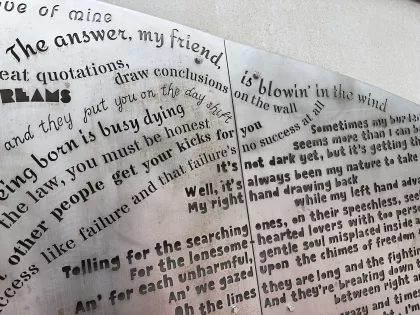 ve of mine
The answer, my friend, is blowin' in the wind
eat quotations, draw conclusions on the wall
REAMS
and they put you on the day shift
eing born is busy dying
the law, you must be honest
other people get your kicks for you
ccess like failure and that failure's no success at all
Sometimes my burden
seems more than I can
It's not dark yet, but it's getting th
Well, it's always been my nature to take
My right hand drawing back
while my left hand adva
Tolling for the searching ones, on their speechless, see
For the lonesome-hearted lovers with too perso
An' for each unharmful, gentle soul misplaced inside a
An' we gazed upon the chimes of freedom f
Oh the lines they are long and the fightin
And they're breaking down t
between right a
razy and time